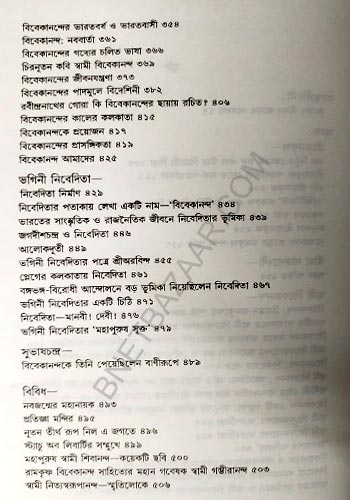 বিবেকানন্দের ভারতবর্ষ ও ভারতবাসী ৩৫৪
বিবেকানন্দ: নববার্তা ৩৬১
বিবেকানন্দের গদ্যের চলিত ভাষা ৩৬৬
চিরনূতন কবি স্বামী বিবেকানন্দ ৩৬৯
বিবেকানন্দের জীবনযন্ত্রণা ৩৭৩
বিবেকানন্দের পাদমূলে বিদেশিনী ৩৮২
রবীন্দ্রনাথের গোরা কি বিবেকানন্দের ছায়ায় রচিত? ৪০৬
বিবেকানন্দের কালের কলকাতা ৪১৫
বিবেকানন্দকে প্রয়োজন ৪১৭
বিবেকানন্দের প্রাসঙ্গিকতা ৪১৯
বিবেকানন্দ আমাদের ৪২৫
ভগিনী নিবেদিতা—
নিবেদিতা নির্মাণ ৪২৯
নিবেদিতার পতাকায় লেখা একটি নাম—‘বিবেকানন্দ’ ৪৩৪
ভারতের সাংস্কৃতিক ও রাজনৈতিক জীবনে নিবেদিতার ভূমিকা ৪৩৯
জগদীশচন্দ্র ও নিবেদিতা ৪৪৬
আলোকদূতী ৪৪৯
ভগিনী নিবেদিতার পত্রে শ্রীঅরবিন্দ ৪৫৫
প্লেগের কলকাতায় নিবেদিতা ৪৬১
বঙ্গভঙ্গ-বিরোধী আন্দোলনে বড় ভূমিকা নিয়েছিলেন নিবেদিতা ৪৬৭
ভগিনী নিবেদিতার একটি চিঠি ৪৭১
নিবেদিতা—মানবী! দেবী! ৪৭৬
ভগিনী নিবেদিতার ‘মহাপুরুষ সূক্ত’ ৪৭৯
সুভাষচন্দ্র—
বিবেকানন্দকে তিনি পেয়েছিলেন বাণীরূপে ৪৮৯
বিবিধ—
নবজন্মের মহানায়ক ৪৯৩
প্রতিজ্ঞা মন্দির ৪৯৫
নূতন তীর্থ রূপ নিল এ জগতে ৪৯৬
স্ট্যাচু অব লিবার্টির সম্মুখে ৪৯৯
মহাপুরুষ স্বামী শিবানন্দ—কয়েকটি ছবি ৫০০
রামকৃষ্ণ বিবেকানন্দ সাহিত্যের মহান গবেষক স্বামী গম্ভীরানন্দ ৫০৩
স্বামী নিত্যস্বরূপানন্দ—স্মৃতিলোকে ৫০৬
BNETBAZAAR.COM